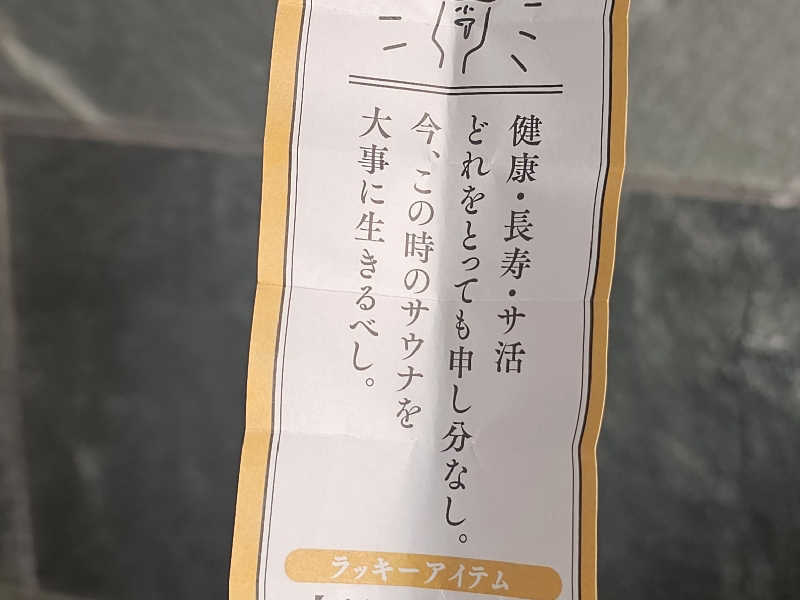 健康・長寿・サ活
どれをとっても申し分なし。
今、この時のサウナを
大事に生きるべし。
ラッキーアイテム